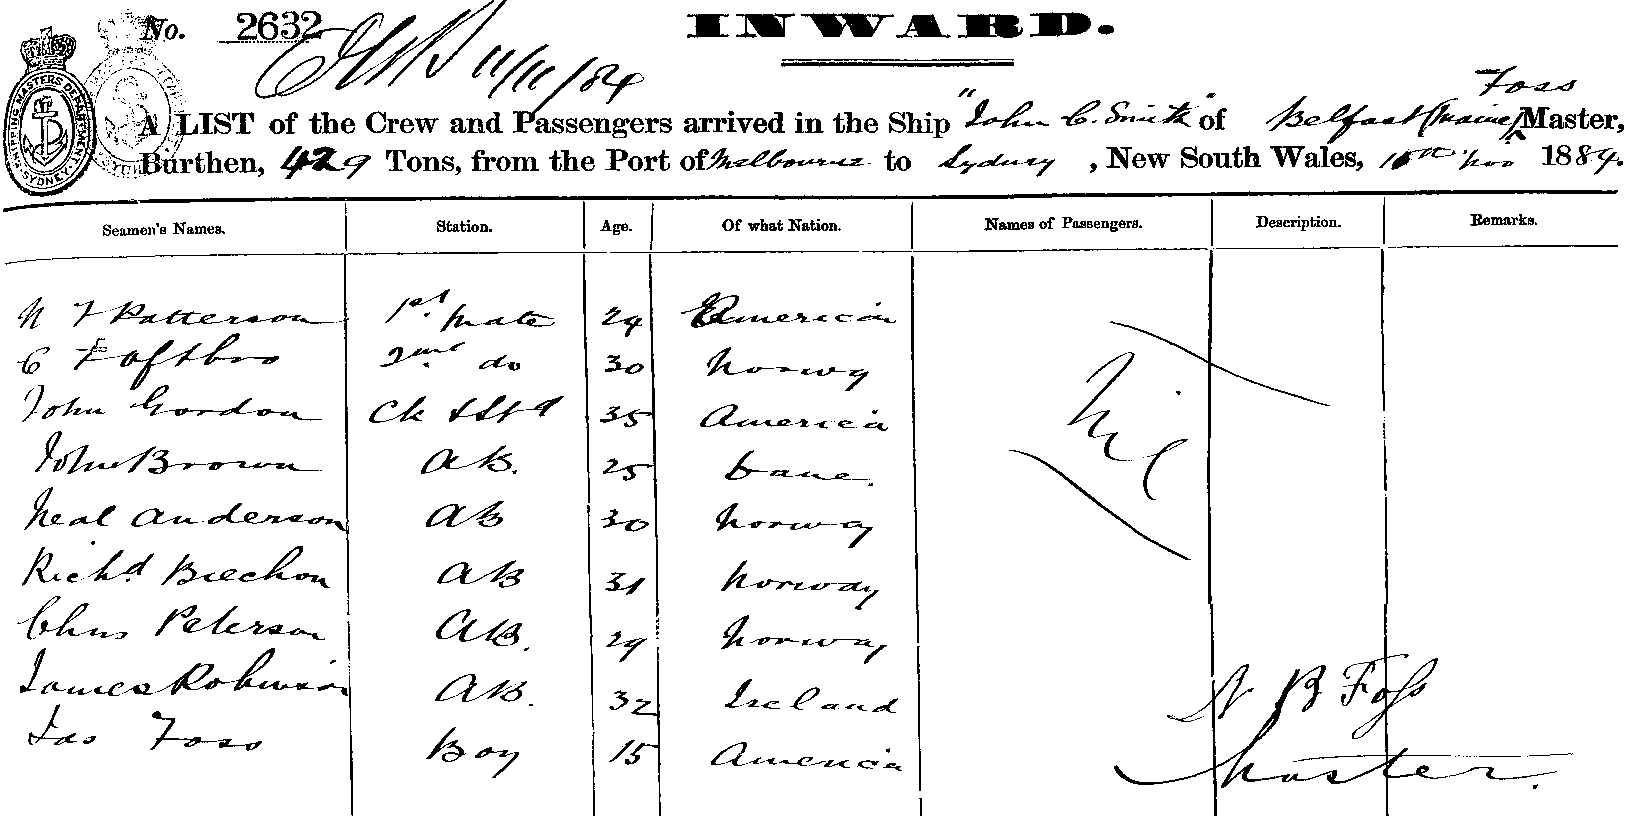 No. 2632
INWARD.
11/11/84
SHIPPING MASTERS DEPARTMENT SYDNEY
Foss
A LIST of the Crew and Passengers arrived in the Ship "John C. Smith" of Belfast (Maine) Master,
Burthen, 429 Tons, from the Port of Melbourne to Sydney, New South Wales, 10th Nov 1884.
Seamen's Names. Station. Age. Of what Nation. Names of Passengers. Description. Remarks.
N F Patterson 1st. mate 29 American
C 2nd do 30 Norwy
John Gordon Ck & Std 35 America
John Brown AB. 25 Dane.
Neal Anderson AB 30 Norway
Richd Beechon AB 31 Norway
Chns Peterson AB. 29 Norway
James Robinson AB. 32 Ireland
Jas Foss Boy 15 America
Nil
N B Foss
Master.